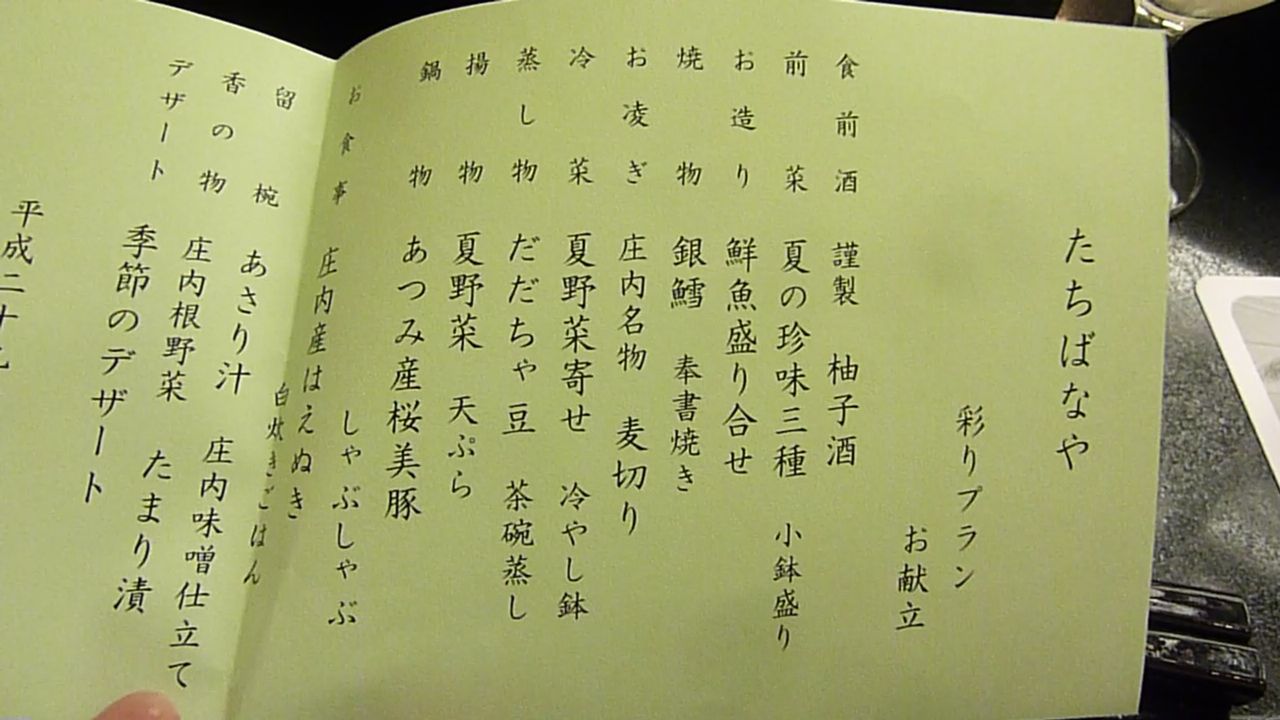 たちばなや
彩りプラン
お献立
食前酒 謹製 柚子酒
前菜 夏の珍味三種 小鉢盛り
お造り 鮮魚盛り合せ
焼物 銀鱈 奉書焼き
お凌ぎ 庄内名物 麦切り
冷菜 夏野菜寄せ 冷やし鉢
蒸し物 だだちゃ豆 茶碗蒸し
揚物 夏野菜 天ぷら
鍋物 あつみ産桜美豚
しゃぶしゃぶ
お食事 庄内産はえぬき
白炊きごはん
留椀 あさり汁 庄内味噌仕立て
香の物 庄内根野菜 たまり漬
デザート 季節のデザート
平成二十九